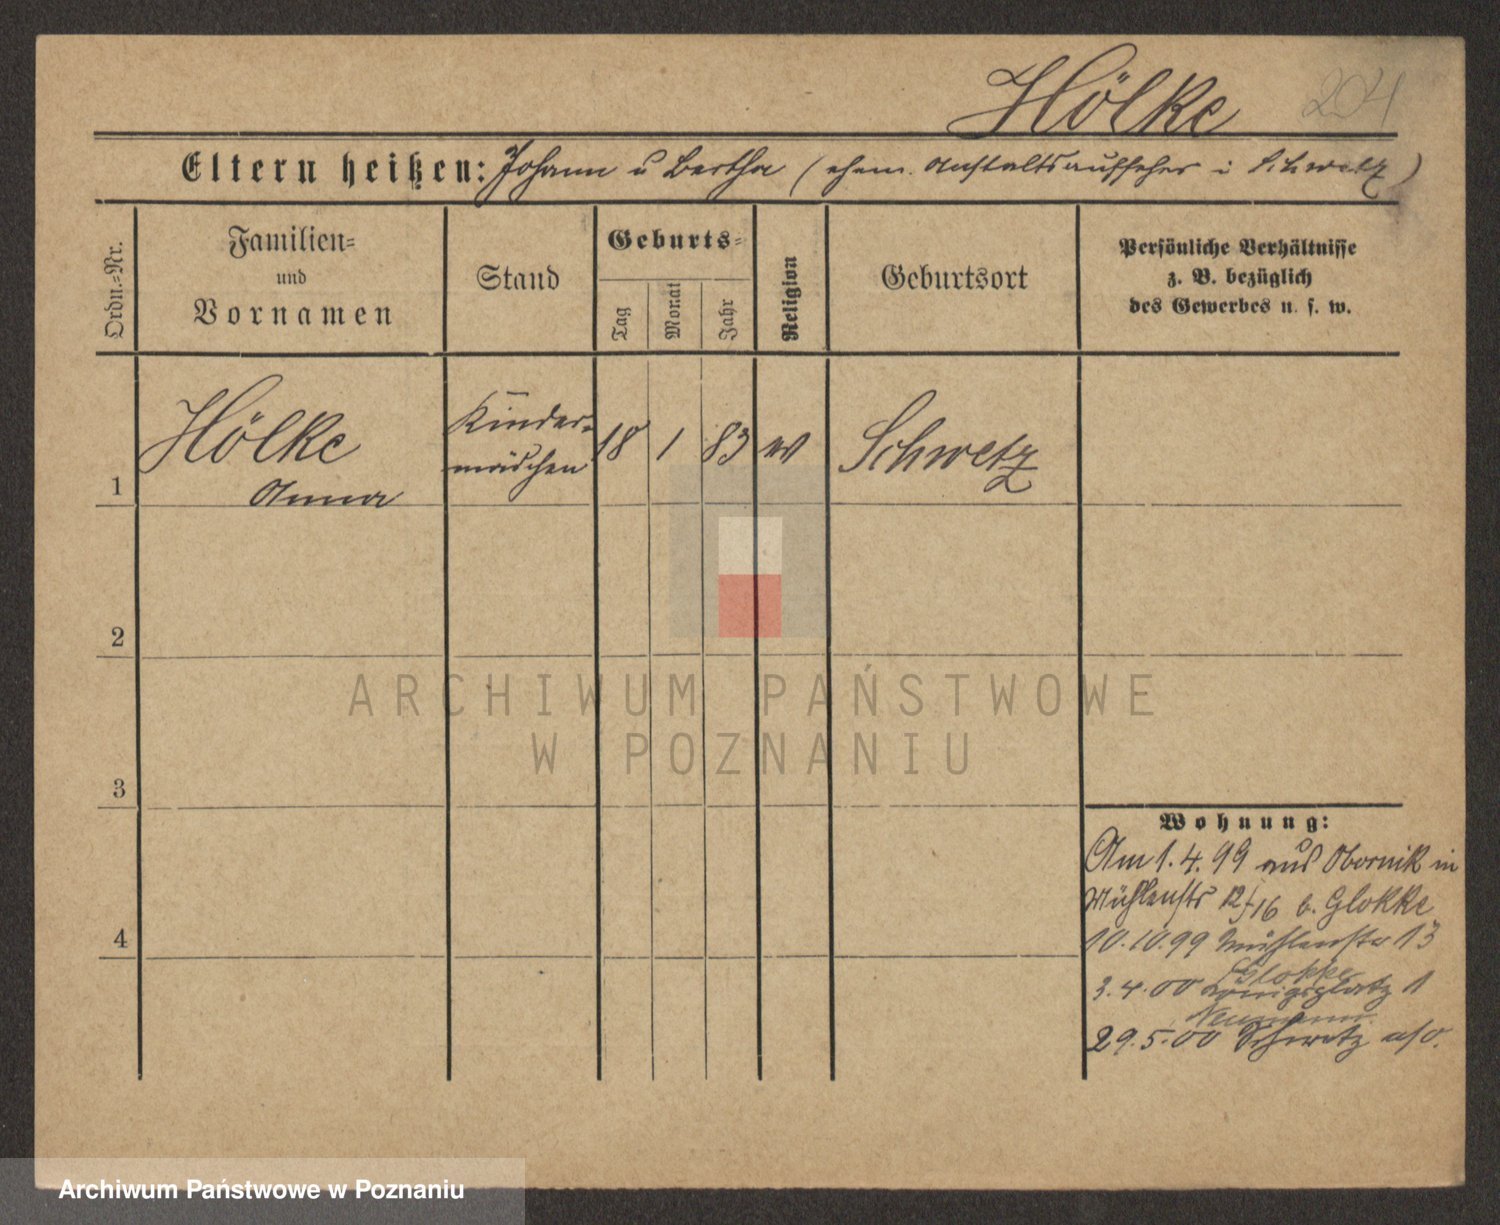 Hölke
204
Eltern heißen: Johann u Bertha (ehem. Anstaltsaufseher i Schwetz)
Ordn.=Nr.
Familien=
und
Vornamen
Stand
Geburts=
Tag
Monat
Jahr
Religion
Geburtsort
Persönliche Verhältnisse
z. B. bezüglich
des Gewerbes u. s. w.
1
Hölke
Anna
Kinder-
mädchen
18
1
83
ev
Schwetz
2
3
4
Wohnung:
Am 1.4.99 aus Obornik in
Mühlenstr 12/16 b. Glokke
10.10.99 Mühlenstr 13
Glokke
3.4.00 Königsplatz 1
Neumann
29.5.00 Schwetz
ARCHIWUM PAŃSTWOWE
W POZNANIU
Archiwum Państwowe w Poznaniu